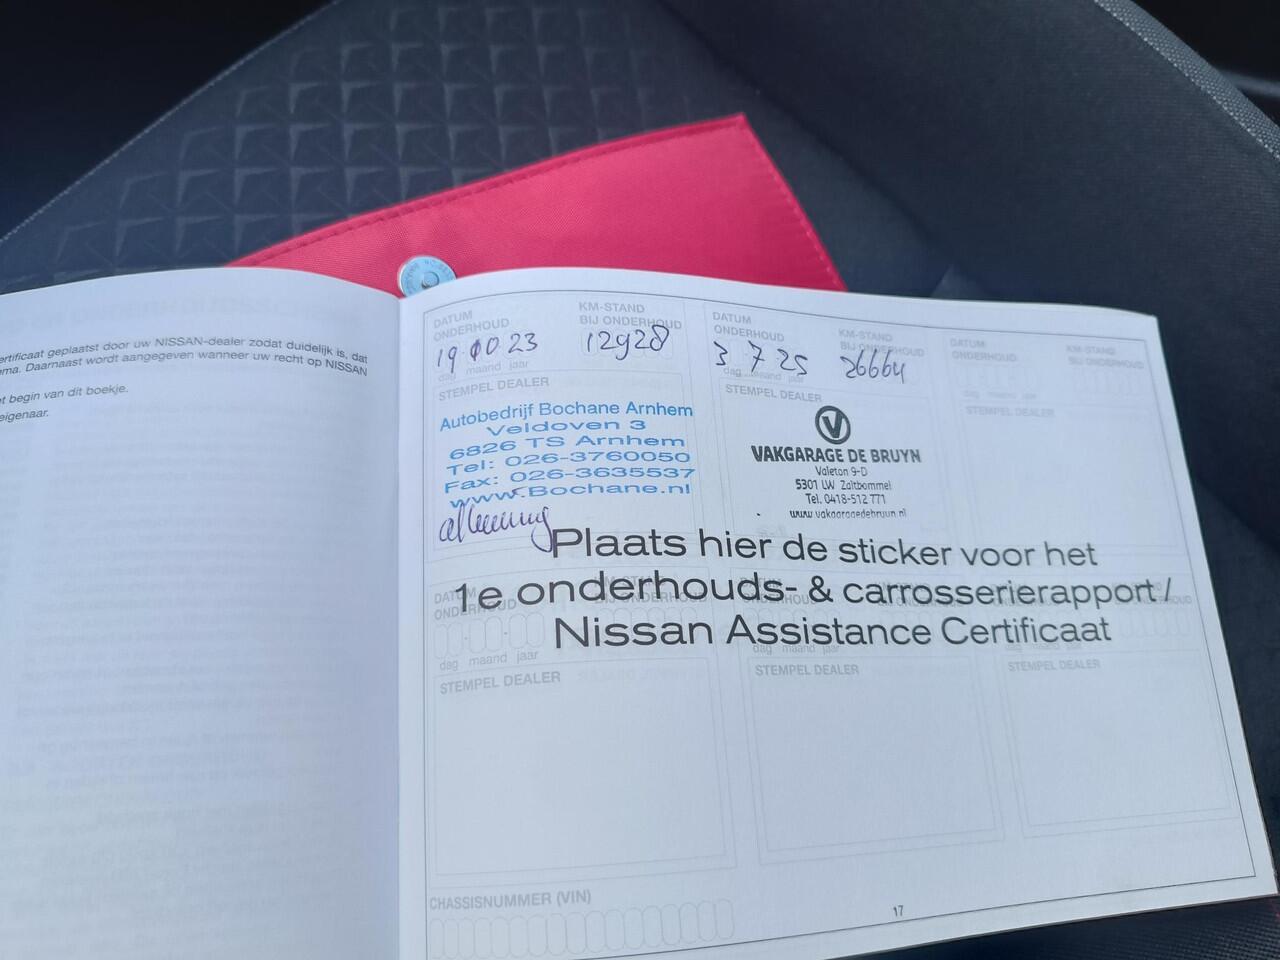 ertificaat geplaatst door uw NISSAN-dealer zodat duidelijk is, dat
ma. Daarnaast wordt aangegeven wanneer uw recht op NISSAN
t begin van dit boekje.
eigenaar.
DATUM
ONDERHOUD
KM-STAND
BIJ ONDERHOUD
19 10 23
12928
dag maand jaar
STEMPEL DEALER
Autobedrijf Bochane Arnhem
Veldoven 3
6826 TS Arnhem
Tel: 026-3760050
Fax: 026-3635537
www.Bochane.nl
DATUM
ONDERHOUD
KM-STAND
BIJ ONDERHOUD
3 7 25
26664
dag maand jaar
STEMPEL DEALER
V
VAKGARAGE DE BRUYN
Valeton 9-D
5301 LW Zaltbommel
Tel. 0418-512 771
www.vakgaragedebruyn.nl
DATUM
ONDERHOUD
KM-STAND
BIJ ONDERHOUD
STEMPEL DEALER
Plaats hier de sticker voor het
1e onderhouds- & carrosserierapport /
Nissan Assistance Certificaat
DATUM
ONDERHOUD
dag maand jaar
STEMPEL DEALER
dag maand jaar
STEMPEL DEALER
STEMPEL DEALER
CHASSISNUMMER (VIN)
17